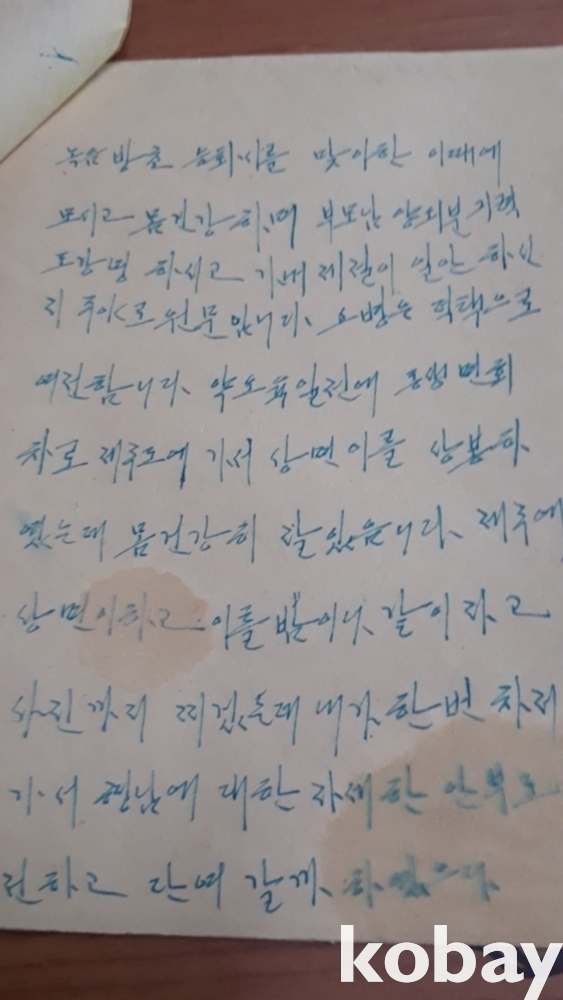 녹음 방초 승화시를 맞이한 이때에
모시고 몸건강하며 부모님 양외분 기력
도강영 하시고 기내 제절이 일안 하신
지 주야로 원문입니다. 요병은 덕택으로
여전합니다. 약 도
동생 면회
차로 제주도에 가서 상면이를 상봉하
였는데 몸건강히 잘있읍니다. 제주에
상면이하고 이틀밤이나 같이자고
사진까지 찌겄는데 내가 한번 차저
가서 형님에 대한 자세한 안부도
전하고 단여 갈게 하였으나
kobay